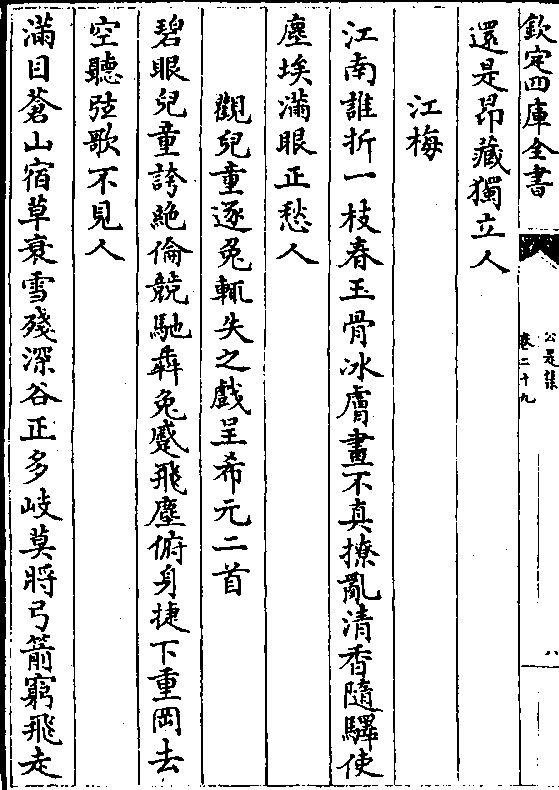 欽定四庫全書
公是集
卷二十九
八
還是昂藏獨立人
江梅
江南誰折一枝春玉骨冰膚畫不真撩亂清香隨驛使
塵埃滿眼正愁人
觀兒童逐兔輒失之戲呈希元二首
碧眼兒童誇絶倫競馳犇兔蹙飛塵俯身捷下重岡去
空聽弦歌不見人
滿目蒼山宿草衰雪殘深谷正多岐莫將弓箭窮飛走